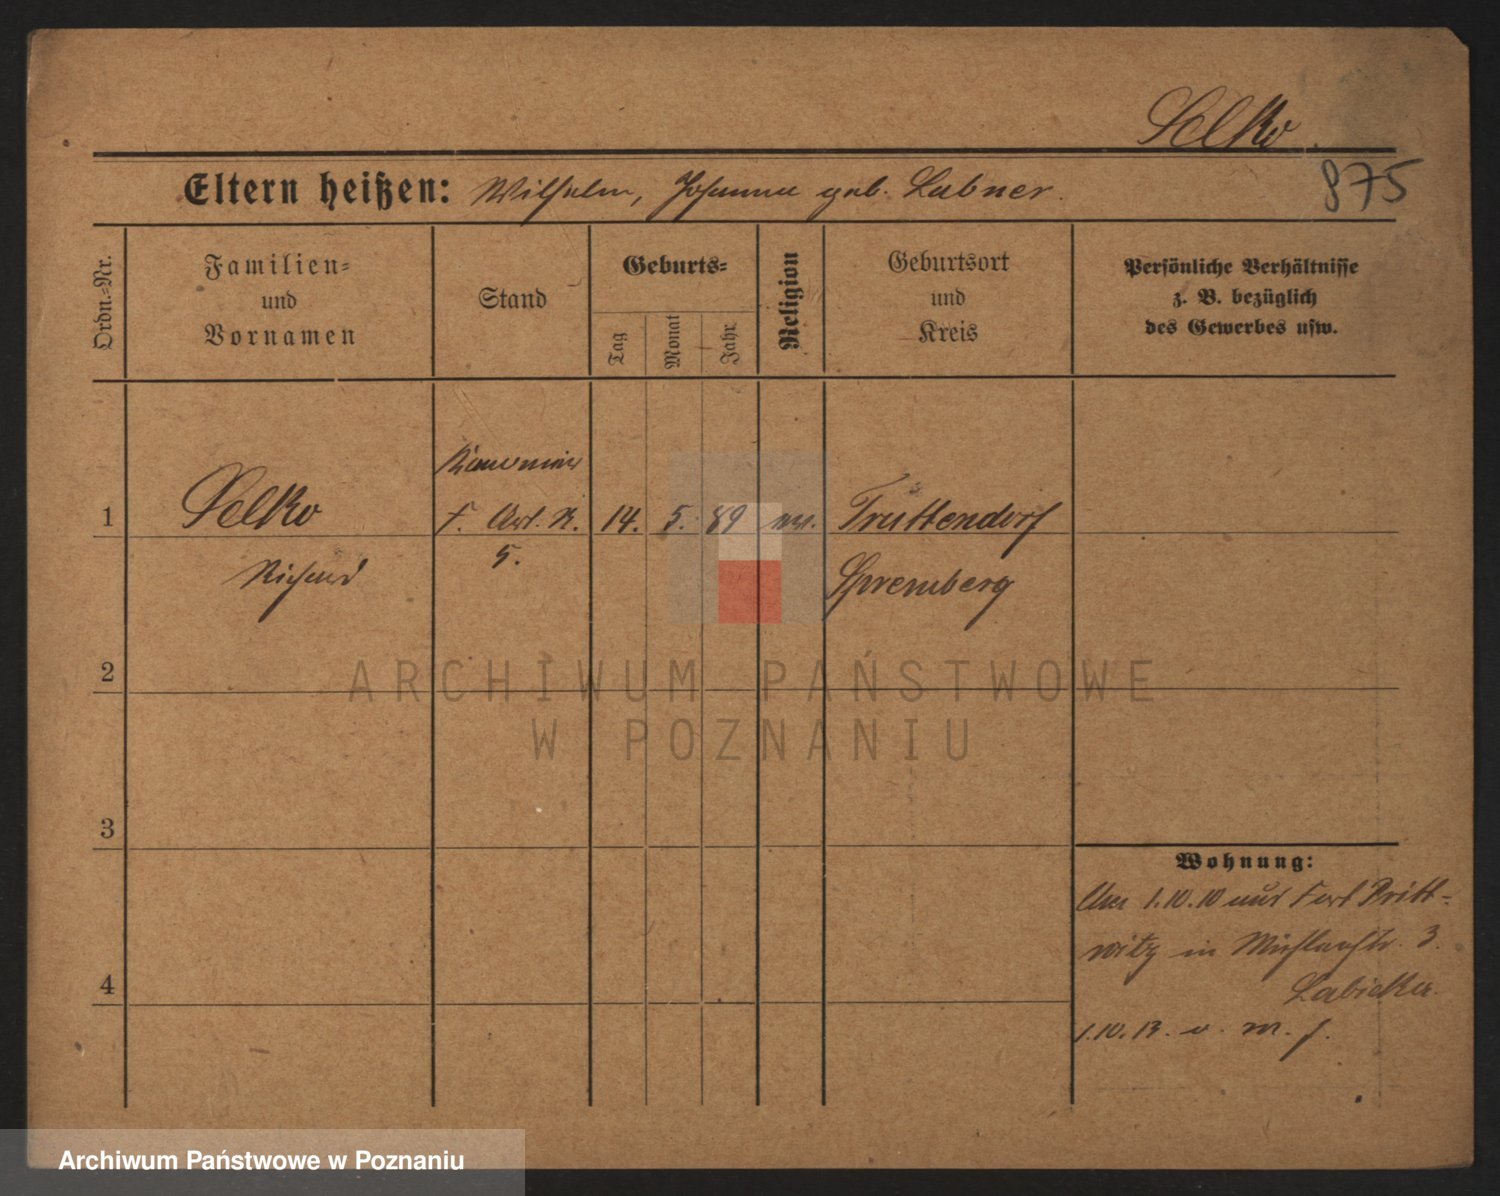 Selko.
Eltern heißen: Wilhelm, Johanna geb. Labner.
875
Ordn.=Nr.
Familien=
und
Vornamen
Stand
Geburts=
Tag
Monat
Jahr
Religion
Geburtsort
und
Kreis
Persönliche Verhältnisse
z. B. bezüglich
des Gewerbes usw.
Kanonier
1 Selko F. Art. R. 14. 5. 89 Truttendorf
5.
Richard Spremberg
2
ARCHIWUM PAŃSTWOWE
W POZNANIU
3
Wohnung:
1.10.10 Fort Pritt-
witz in 3.
4
1.10.13. v. M. f.
Archiwum Państwowe w Poznaniu